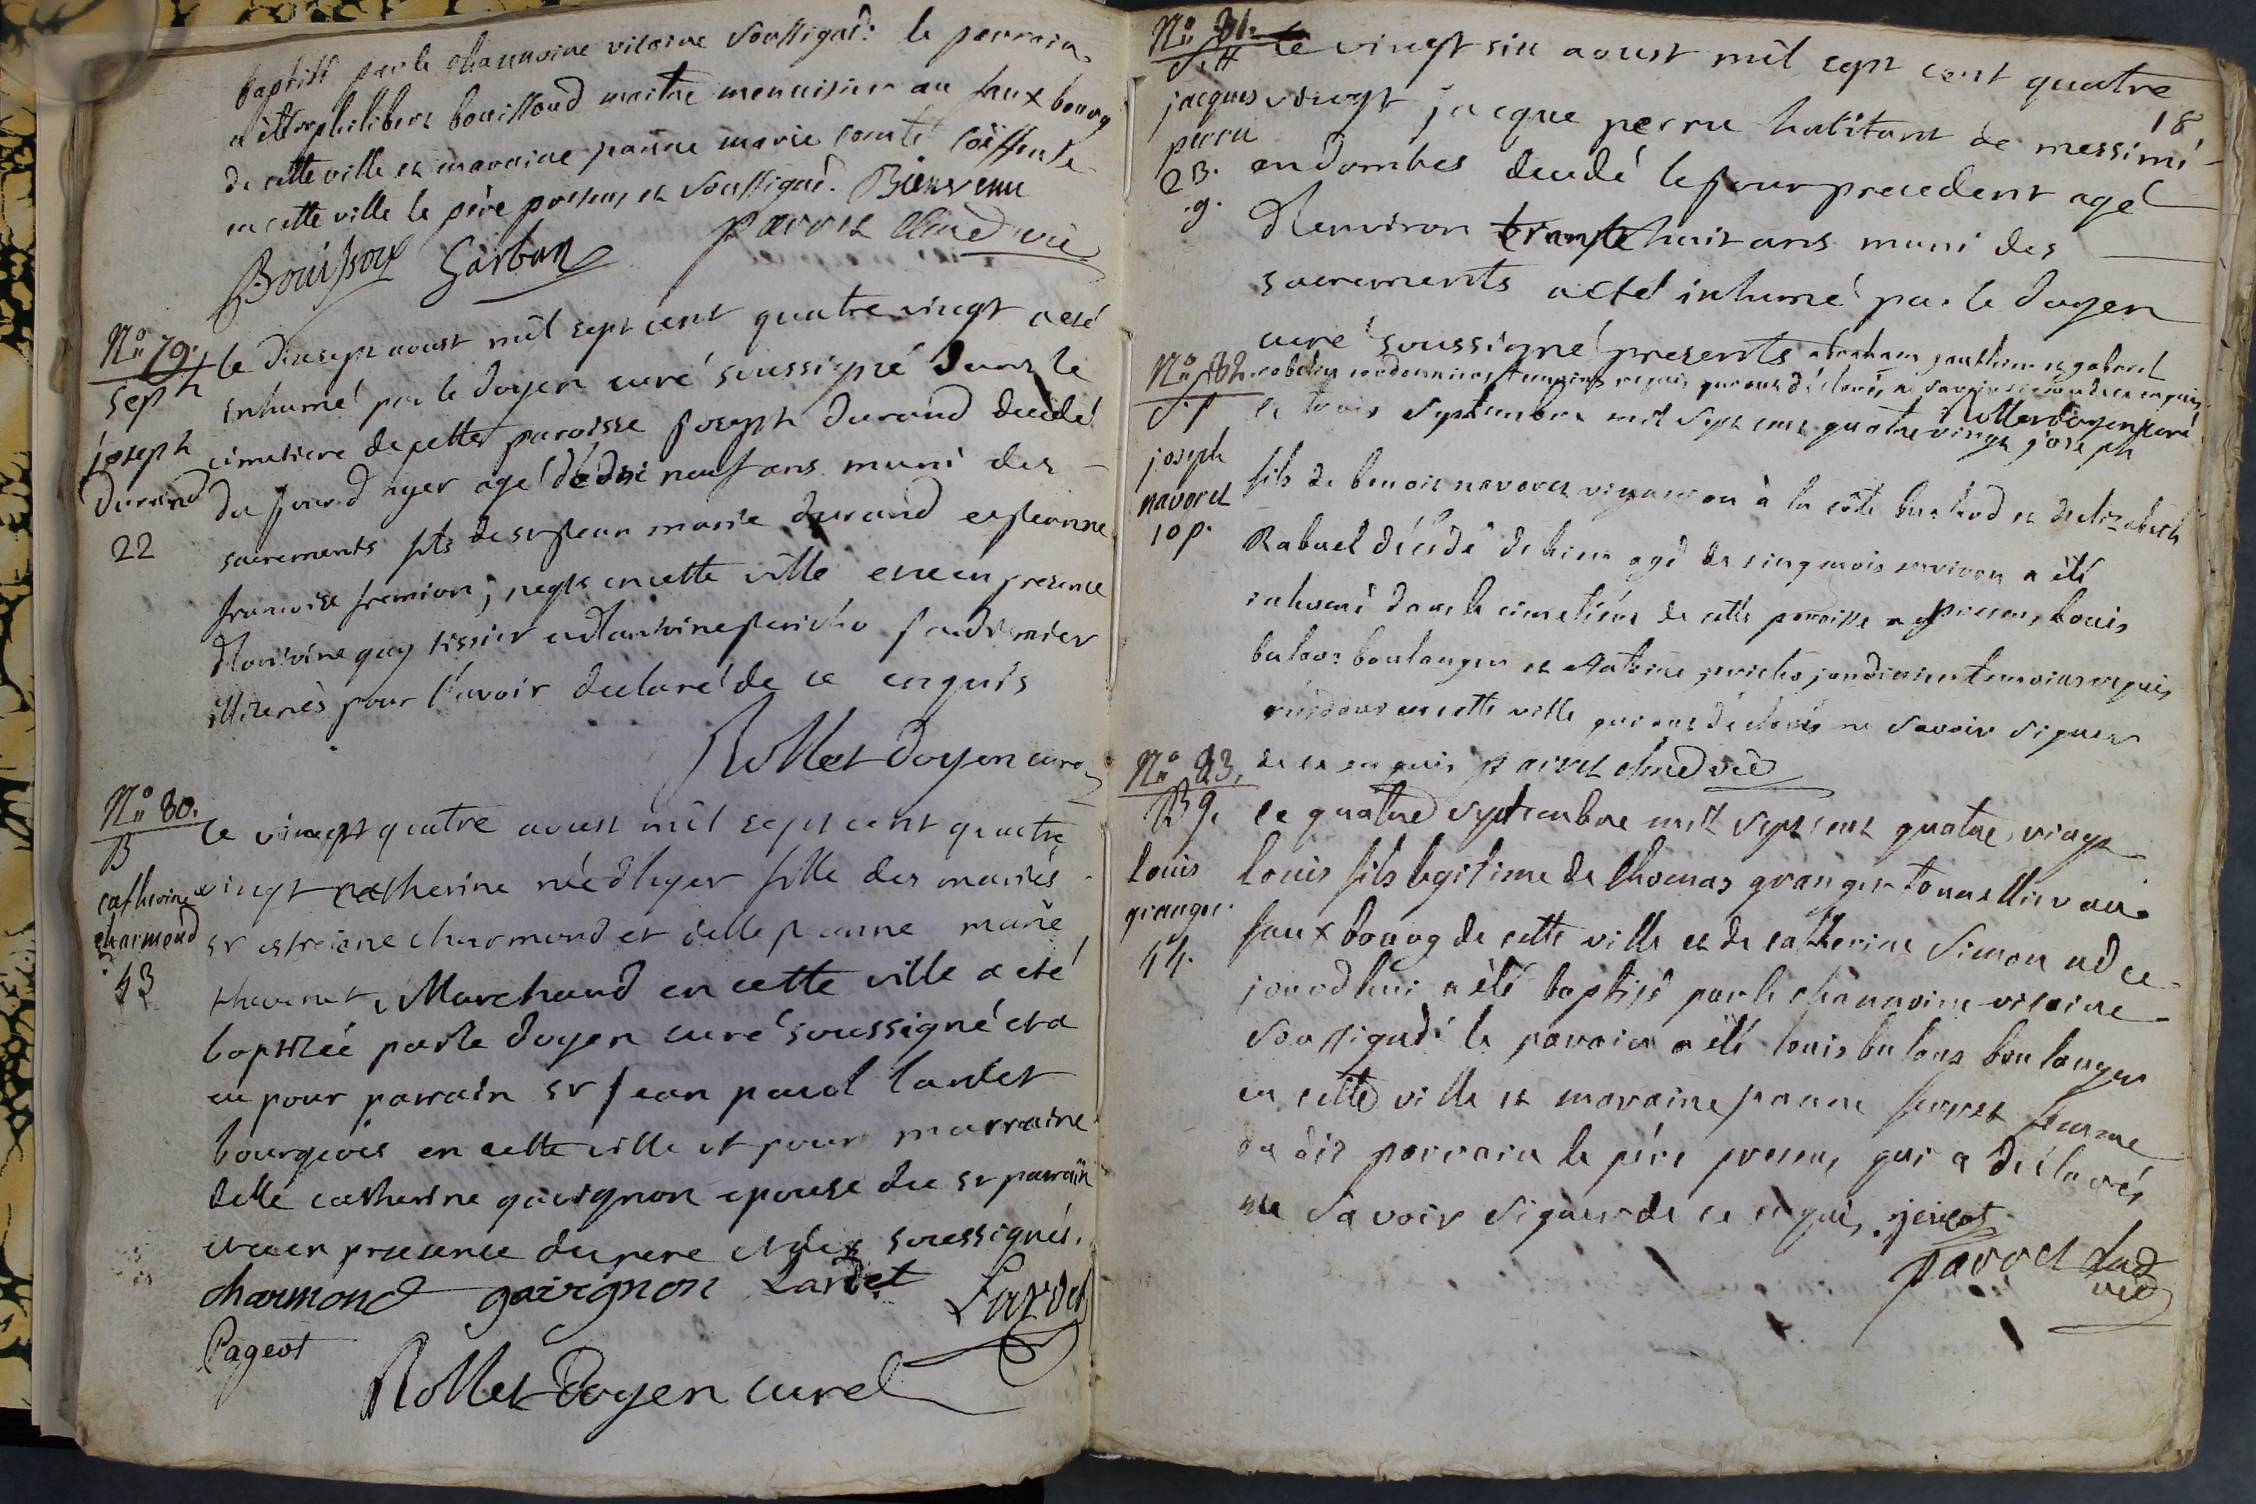 baptisé par le chanoine vicaire soussigné: le parrain
a été philibert bouissoud maitre menuisier au faux bourg
de cette ville et maraine janne marie comte coëffeuse
en cette ville le père present et soussigné. Bienvenu
Bouissou garban parret chne vic
No 79.
sept
joseph
Durand
22
le dixsept aoust mil sept cent quatre vingt a eté
inhumé par le doyen curé soussigné dans le
cimetiere de cette paroisse joseph durand decedé
du jour d'hyer agé de dix neuf ans muni des
sacrements fils de sr jean marie durand et jeanne
francoise fremion, negt en cette ville en presence
d'antoine guy tissier et d'antoine jericho jardinier
illiterés pour l'avoir declaré de ce enquis
Rollet doyen curé
No 80.
B
catherine
charmond
43
le vingt quatre aoust mil sept cent quatre
vingt catherine née d'hyer fille des mariés
sr estreine charmond et delle jeanne marie
thevenet, Marchand en cette ville a eté
baptizée par le doyen curé soussigné et a
eu pour parrain sr jean paul lardet
bourgeois en cette ville et pour marraine
delle catherine gavignon epouse du sr parrain
et en presence du pere et des soussignés.
charmond gavignon Lardet Lardet
Pageot
Rollet doyen curé
18
No 81.
Sept
jacques
perru
23.
.g.
le vingt six aoust mil sept cent quatre
vingt jacque perru habitant de messimi
en dombes decedé le jour precedent agé
d'environ trente huit ans muni des
sacrements a eté inhumé par le doyen
curé soussigné presents abraham gauthier et gabriel
cordonniers temoins requis qui ont déclarés ne savoir signer de ce enquis
Rollet doyen curé
No 82
S.p
joseph
navoret
10 p.
le trois septembre mil sept cent quatre vingt joseph
fils de benoit navoret vigneron à la côte et d'elizabeth
Rabuel décédé de hier agé de cinq mois environ a été
inhumé dans le cimetière de cette paroisse presens, Louis
butous boulanger et Antoine jericho jardinier temoins requis
résidans en cette ville qui ont déclarés ne savoir signer
de ce enquis parret chne vic
No 83.
B g.
louis
granger
44.
le quatre septembre mil sept cent quatre vingt
louis fils legitime de thomas granger tonnellier au
faux bourg de cette ville et de catherine simon né ce
jourd'hui a été baptisé par le chanoine vicaire
soussigné: le parain a été louis butous boulanger
en cette ville et maraine janne femme
du dit parrain le père present qui a déclarés
ne savoir signer de ce enquis.
parret chne
vic